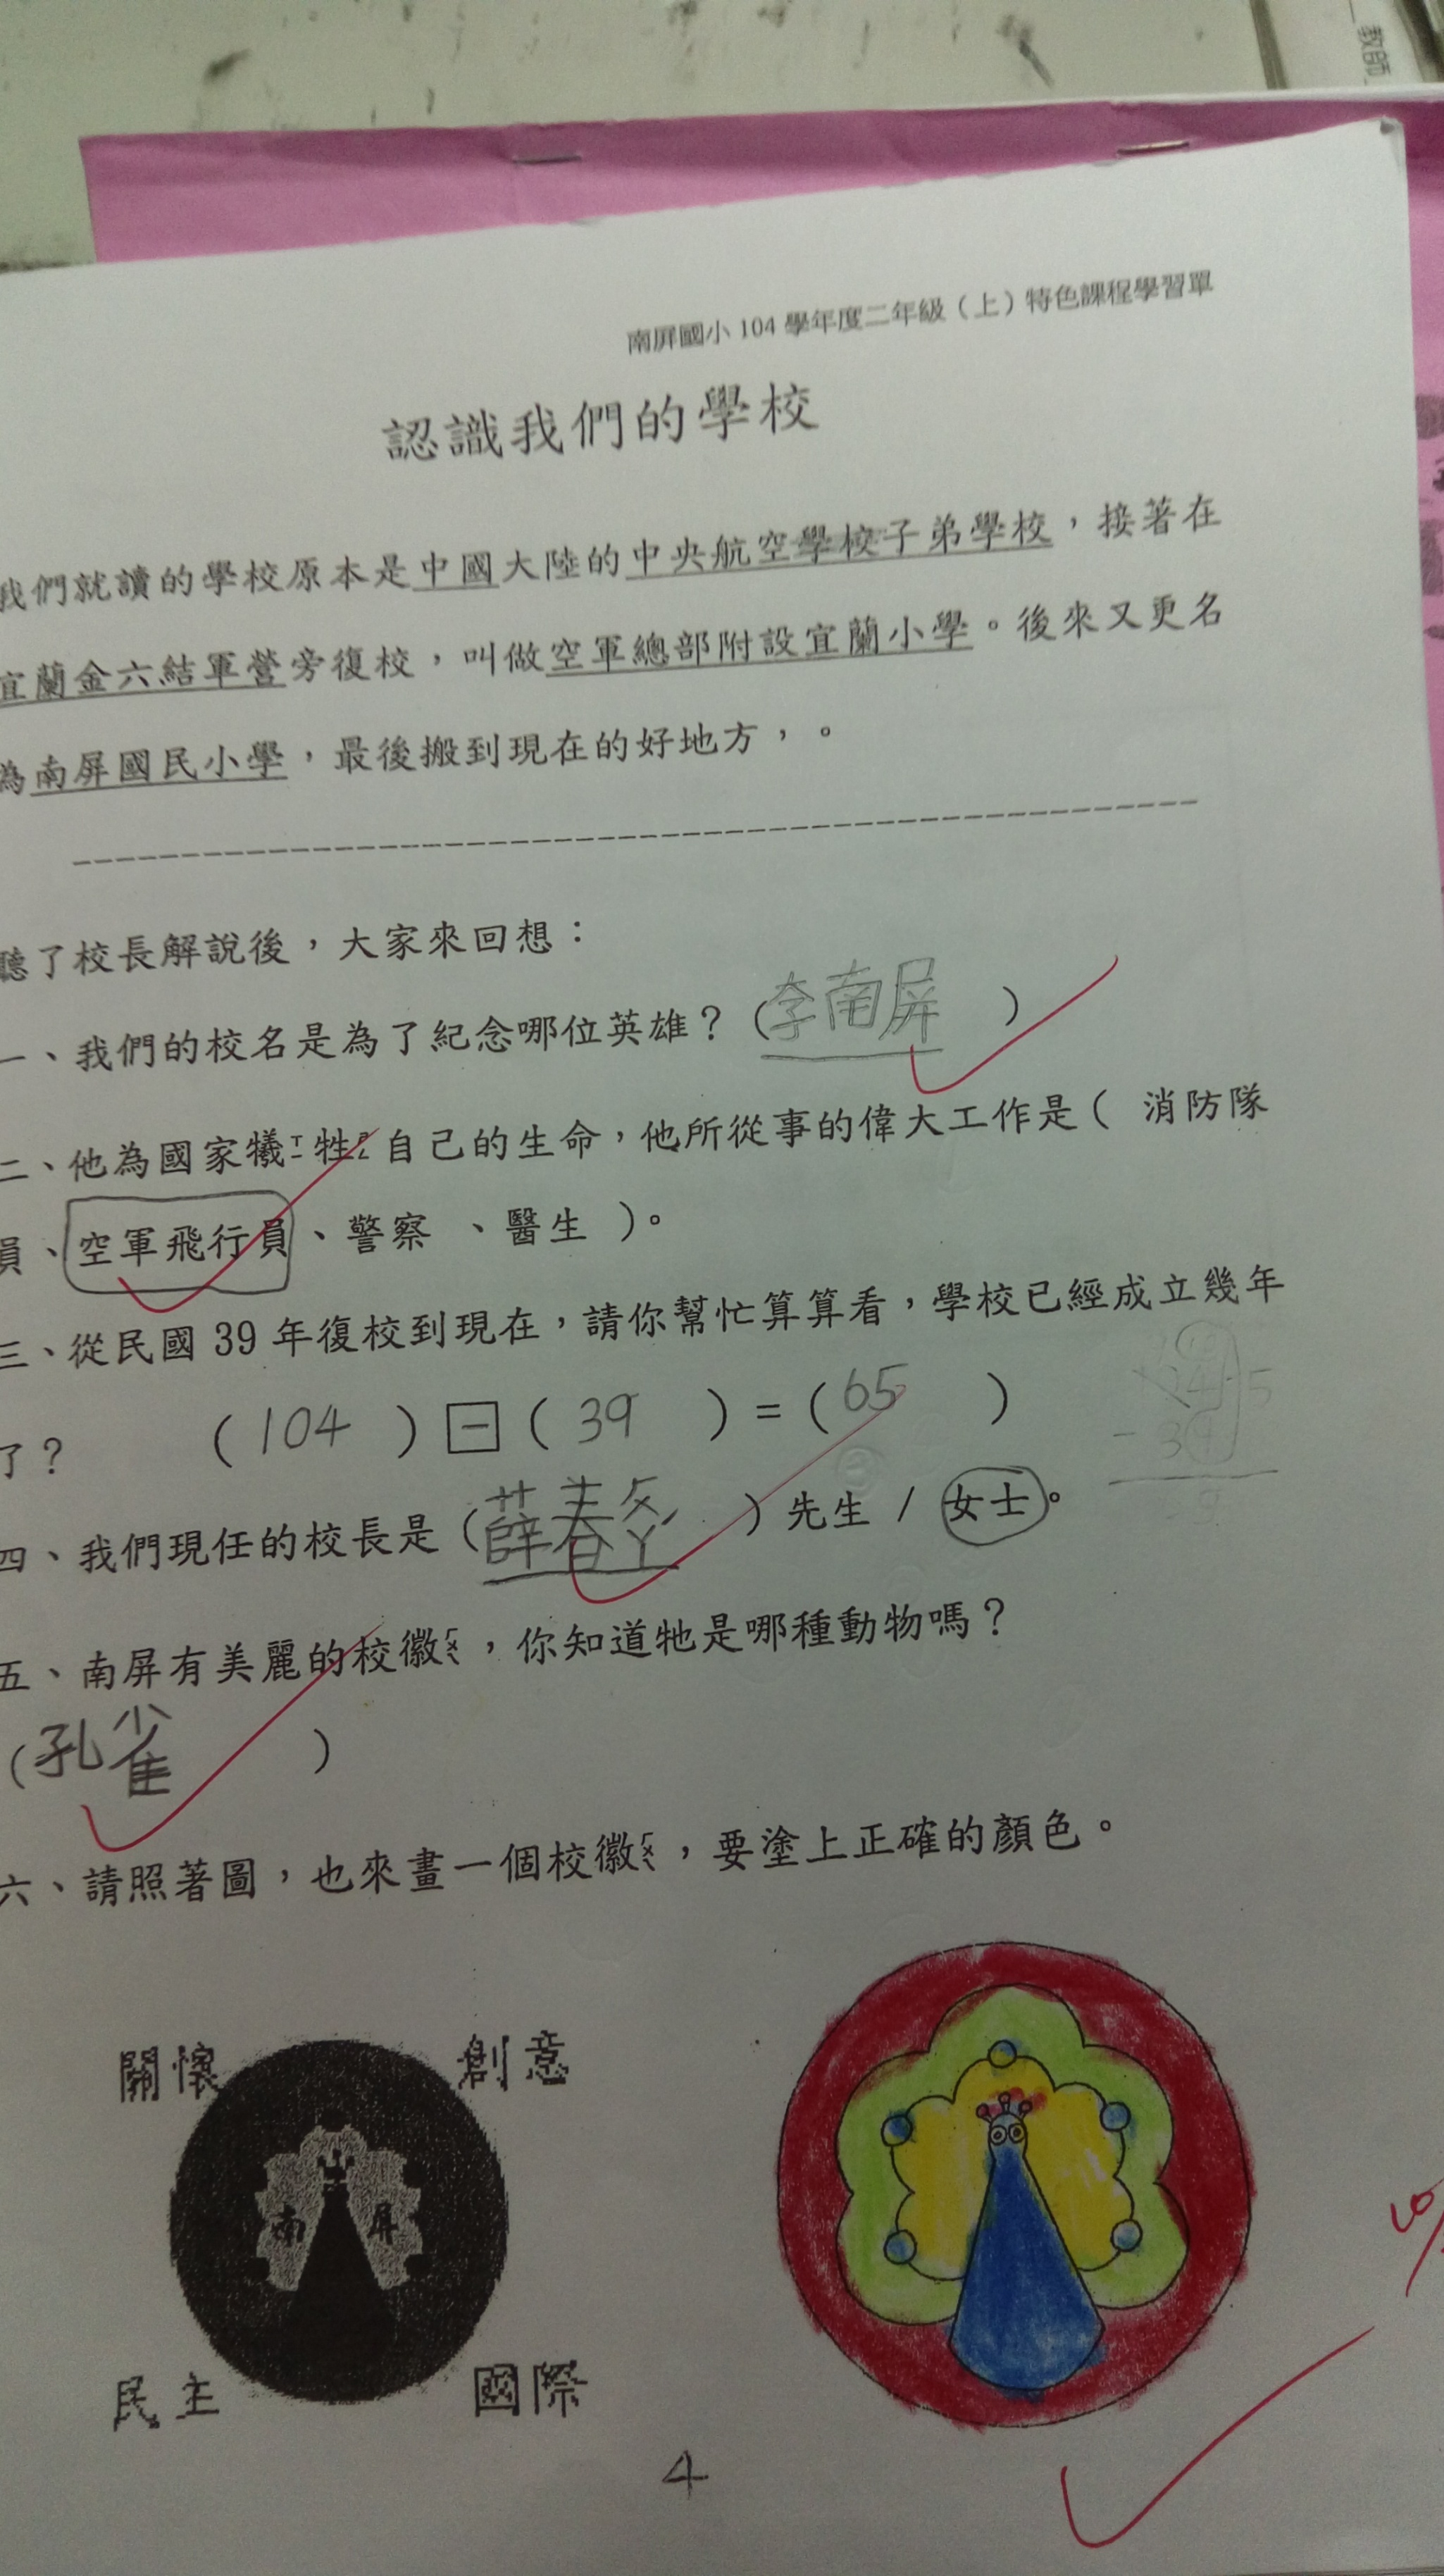 教師
南屏國小 104 學年度二年級（上）特色課程學習單
認識我們的學校
我們就讀的學校原本是中國大陸的中央航空學校子弟學校，接著在
宜蘭金六結軍營旁復校，叫做空軍總部附設宜蘭小學。後來又更名
為南屏國民小學，最後搬到現在的好地方，。
聽了校長解說後，大家來回想：
一、我們的校名是為了紀念哪位英雄？（李南屏）
二、他為國家犧ㄒㄧ牲ㄕㄥ自己的生命，他所從事的偉大工作是（ 消防隊
員、空軍飛行員、警察 、醫生 ）。
三、從民國 39 年復校到現在，請你幫忙算算看，學校已經成立幾年
了？ （104）－（39）＝（65）
四、我們現任的校長是（薛春ㄏㄨㄚˊ）先生 / 女士。
五、南屏有美麗的校徽ㄏㄨㄟ，你知道牠是哪種動物嗎？
（孔雀）
六、請照著圖，也來畫一個校徽ㄏㄨㄟ，要塗上正確的顏色。
關懷 創意
南 屏
民主 國際
4